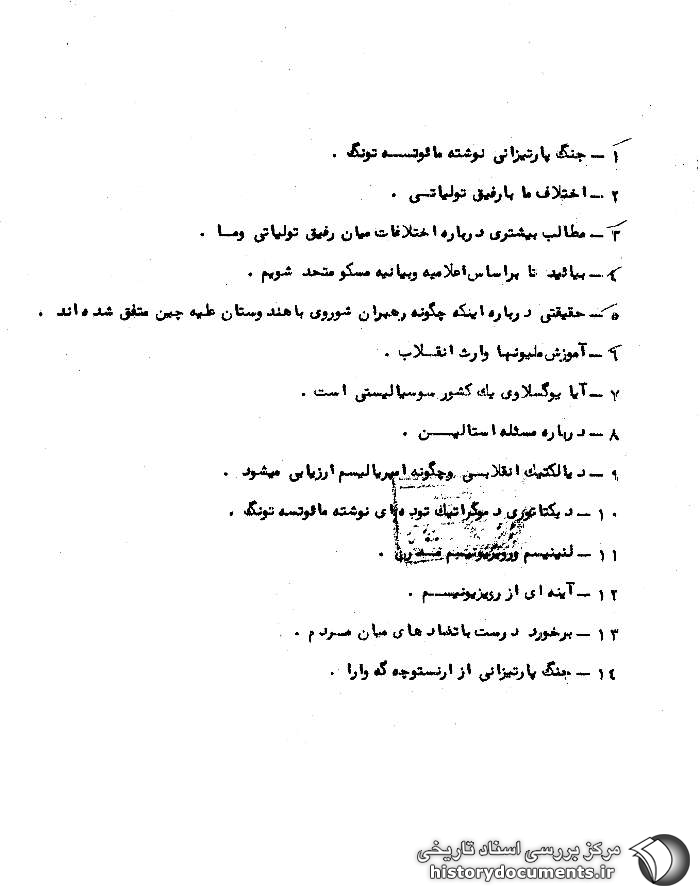 ۱ – جنگ پارتیزانی نوشته مائوتسه تونگ .
۲ – اختلاف ما با رفیق تولیاتی .
۳ – مطالب بیشتری درباره اختلافات میان رفیق تولیاتی وما .
۴ – بیائید تا براساس اعلامیه وبیانیه مسکو متحد شویم .
۵ – حقیقتی درباره اینکه چگونه رهبران شوروی با هندوستان علیه چین متفق شده اند .
۶ – آموزش ملیونها وارث انقلاب .
۷ – آیا یوگسلاوی یك کشور سوسیالیستی است .
۸ – درباره مسئله استالیـن .
۹ – دیالکتیك انقلابی وچگونه امپریالیسم ارزیابی میشود .
۱۰ – دیکتاتوری دموکراتیك توده ای نوشته مائوتسه تونگ .
۱۱ – لنینیسم ورویزیونیسم مدرن .
۱۲ – آینه ای از رویزیونیسم .
۱۳ – برخورد درست باتضادهای میان مردم .
۱۴ – جنگ پارتیزانی از ارنستوچه گه وارا .
مرکز بررسی اسناد تاریخی
historydocuments.ir